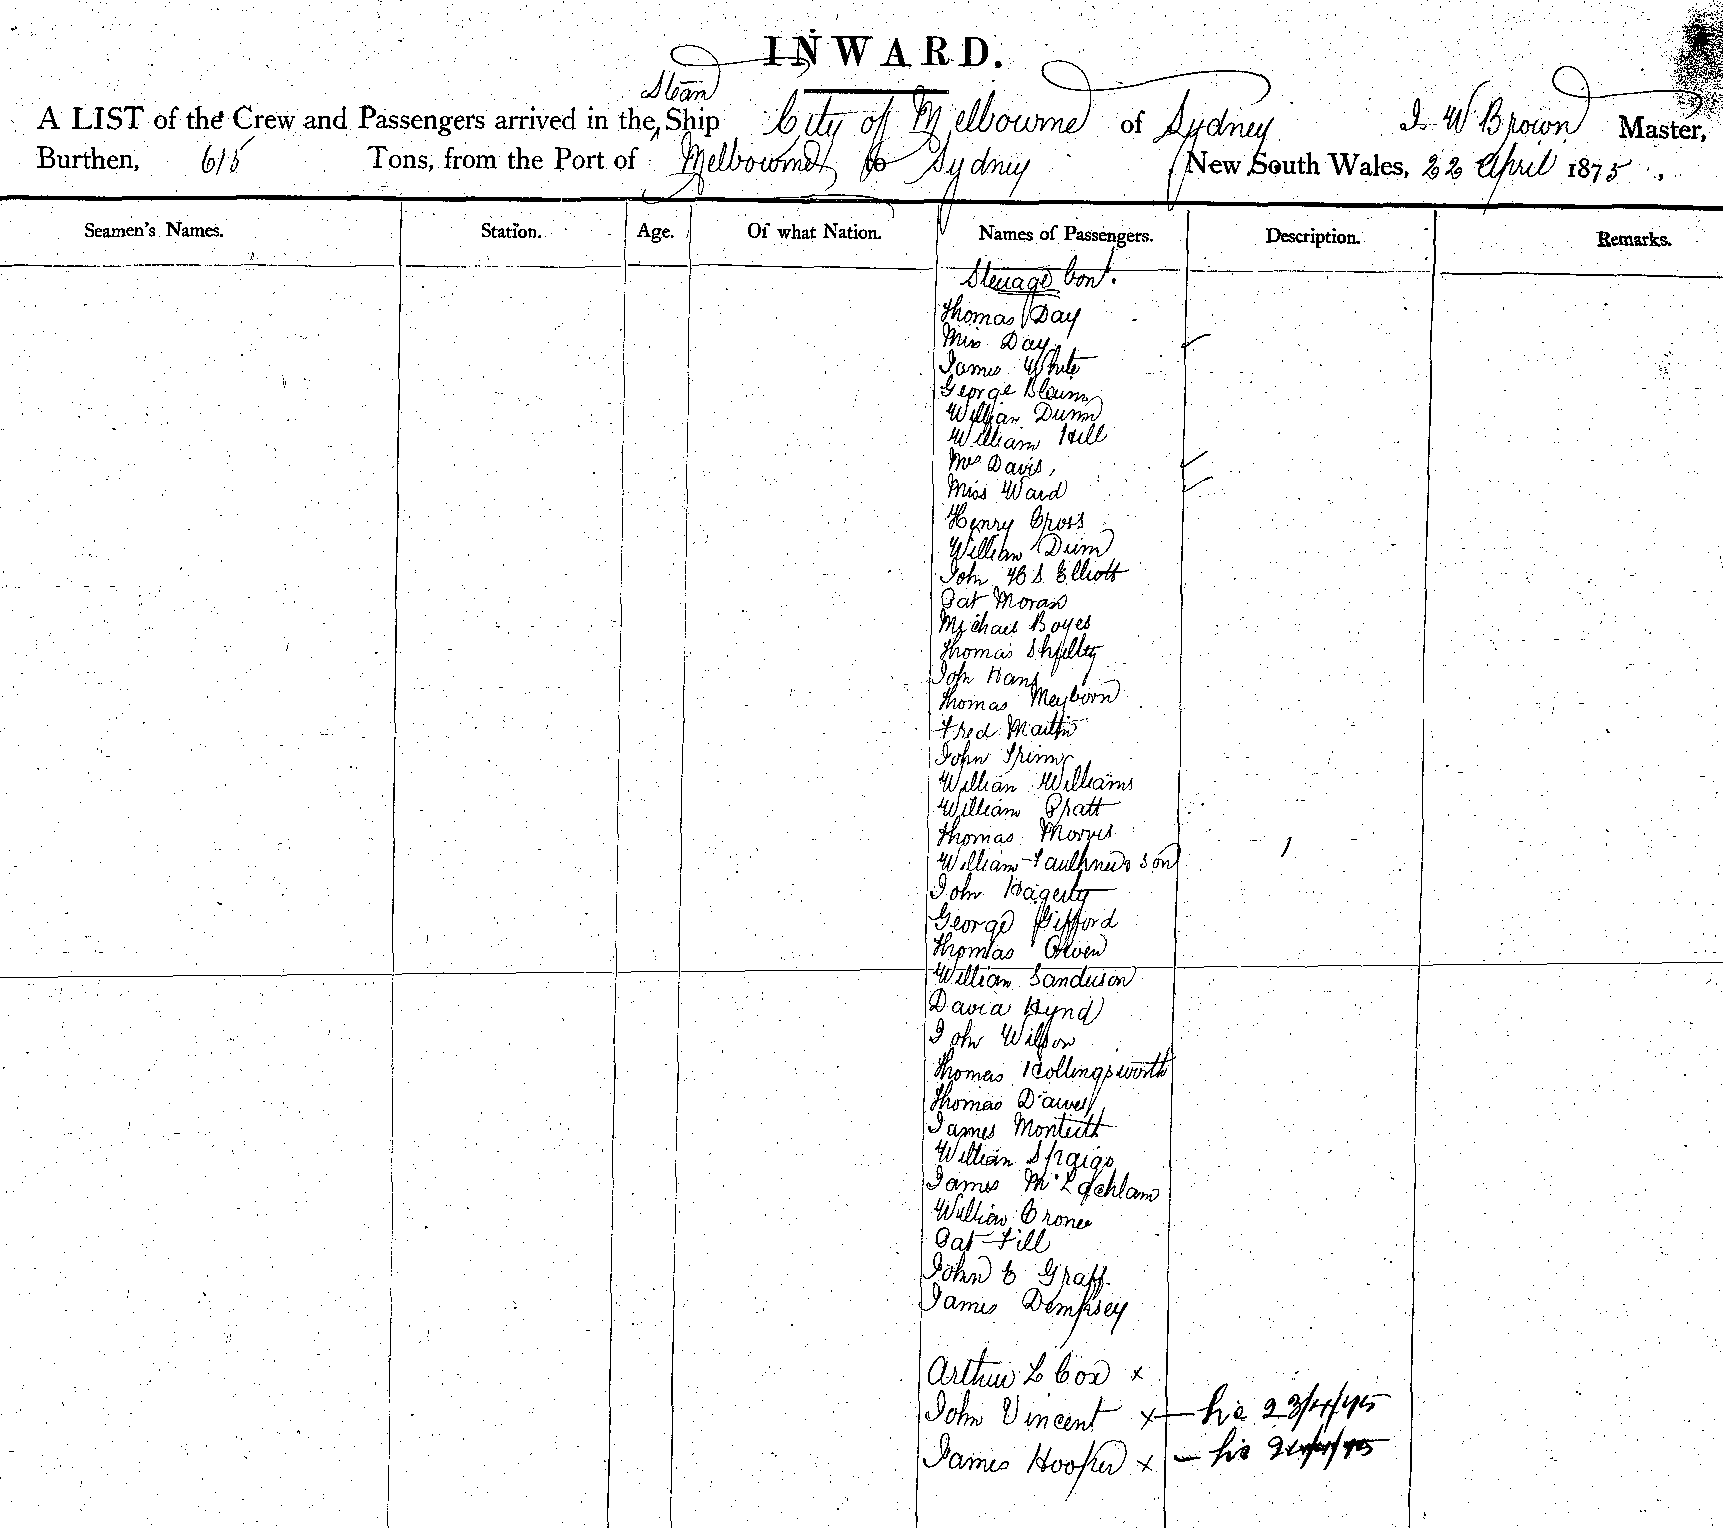 INWARD.
Steam
A LIST of the Crew and Passengers arrived in the Ship City of Melbourne of Sydney J W Brown Master,
Burthen, 615 Tons, from the Port of Melbourne to Sydney New South Wales, 22 April 1875.
Seamen's Names. Station. Age. Of what Nation. Names of Passengers. Description. Remarks.
Steerage Cont.
Thomas Day
Mrs Day
James White
George
William Dunn
William Hill
Mrs Davis,
Miss Ward
Henry Cross
William Dunn
John H S Elliott
Pat Moran
Michael Boyes
Thomas Shelley
John
Thomas Meyborn
Fred Martin
John
William Williams
William Pratt
Thomas Morris
William Faulkner & son 1
John Hagerty
George Gifford
Thomas Owen
William Sanderson
David Hynd
John Wilson
Thomas Hollingsworth
Thomas Dawes
James Monteith
William
James McLachlan
William Crone
Pat Fill
John C Graff
James Dempsey
Arthur L Cox x
John Vincent x 23/4/75
James Hooper x